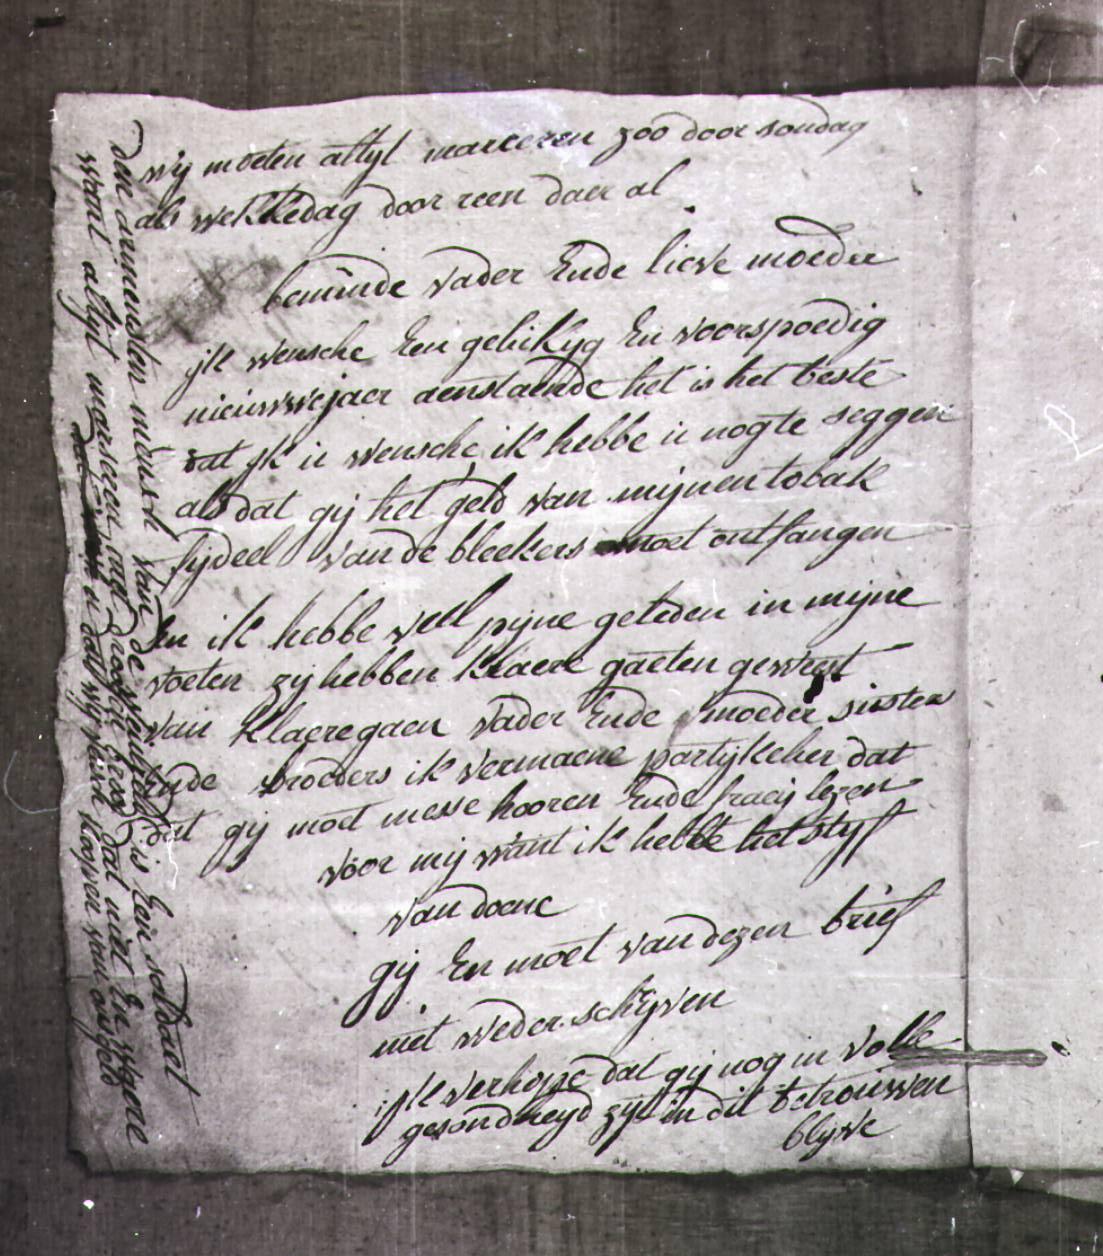 wij moeten altyt marceren zoo door sondag
als wekkedag door reen daer al
beminde vader Ende lieve moeder
yk wensche Een gelukyg En voorspoedig
nieuwwejaer aenstaende het is het beste
dat yk u wensche ik hebbe u nog te seggen
als dat gij het geld van mijnen tobak
van de bleekers moet ontfangen
En ik hebbe vell pyne geleden in mijne
voeten zy hebben klaere gaeten geweest
van klaere gaen vader Ende moeder susters
Ende broeders ik vermaene partykelier dat
dat gij moet messe hooren Ende fraeij lezen
voor mij want ik hebbe het styf
van doene
gij En moet van dezen brief
niet weder schyven
yk verhope dat gij nog in volle
gesondheyd zyt in dit betrouwen
blyve
den armensten mensch van de weireld is Een soldaet
want altyt marceren met droog broot dat niet En waere